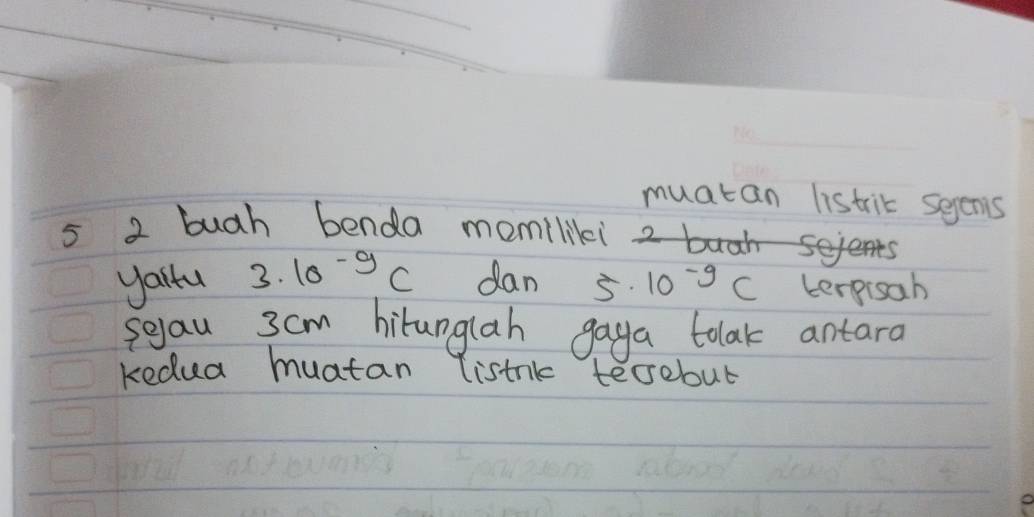 No.
Date
muatan listrik sejenis
5 2 buah benda memiliki 2 buah sejenis
yaitu 3.10⁻⁹ C dan 5.10⁻⁹ C terpisah
sejau 3cm hitunglah gaya tolak antara
kedua muatan listrik tersebut